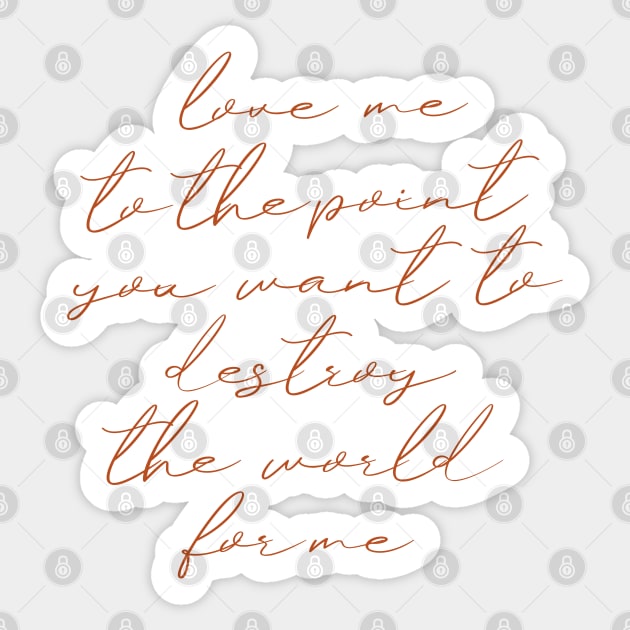 love me
to the point
you want to
destroy
the world
for me